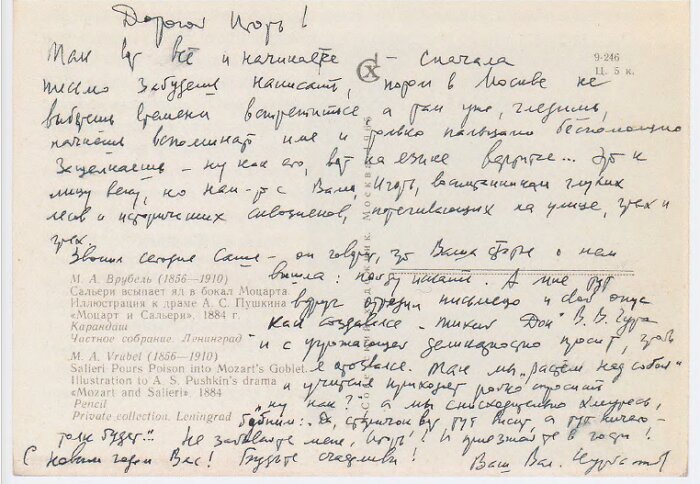 Дорогой Игорь!
Так вот всё и начинается – сначала
письмо забудешь написать, потом в Москве не
выберешь времени встретиться, а там уже, глядишь,
начнёшь вспоминать имя и только пальцами беспомощно
защелкаешь – ну как его, вот на языке вертится... Это к
лицу веку, но нам-то с Вами, Игорь, воспитанникам глухих
лесов и исторических сквозняков, на улице, грех и
грех.
Звонил сегодня Саше – он говорит, что Ваша о нем
вышла: пойду искать. А мне тут
вдруг письмецо и свой опус
Как создавался "Тихий Дон" В. В. Гура
и с угрожающей деликатностью просит, чтоб
я отозвался. Так мы "растём над собой"
и учителя приходят робко
"ну как?" а мы снисходительно хмурясь,
бубним: Да, старичок, вот тут а тут ничего –
толк будет..." Не забывайте меня, Игорь! И приезжайте в гости!
С новым годом Вас! Будьте счастливы! Ваш Вал. Курбатов
9-246
Ц. 5 к.
М. А. Врубель (1856—1910)
Сальери всыпает яд в бокал Моцарта
Иллюстрация к драме А. С. Пушкина
«Моцарт и Сальери». 1884 г.
Карандаш
Частное собрание. Ленинград
M. A. Vrubel (1856—1910)
Salieri Pours Poison into Mozart's Goblet.
Illustration to A. S. Pushkin's drama
«Mozart and Salieri». 1884
Pencil
Private collection. Leningrad